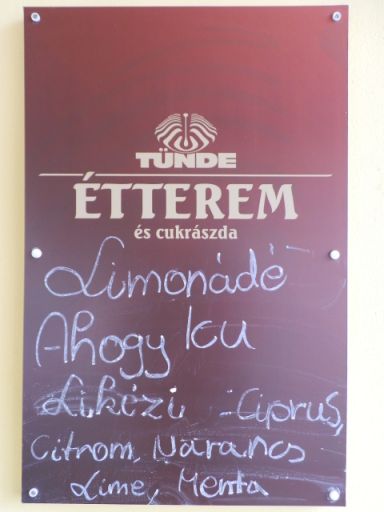 TÜNDE
ÉTTEREM
és cukrászda
Limonádé
Ahogy Icu
Likézi - Ciprus,
Citrom, Narancs
Lime, Menta